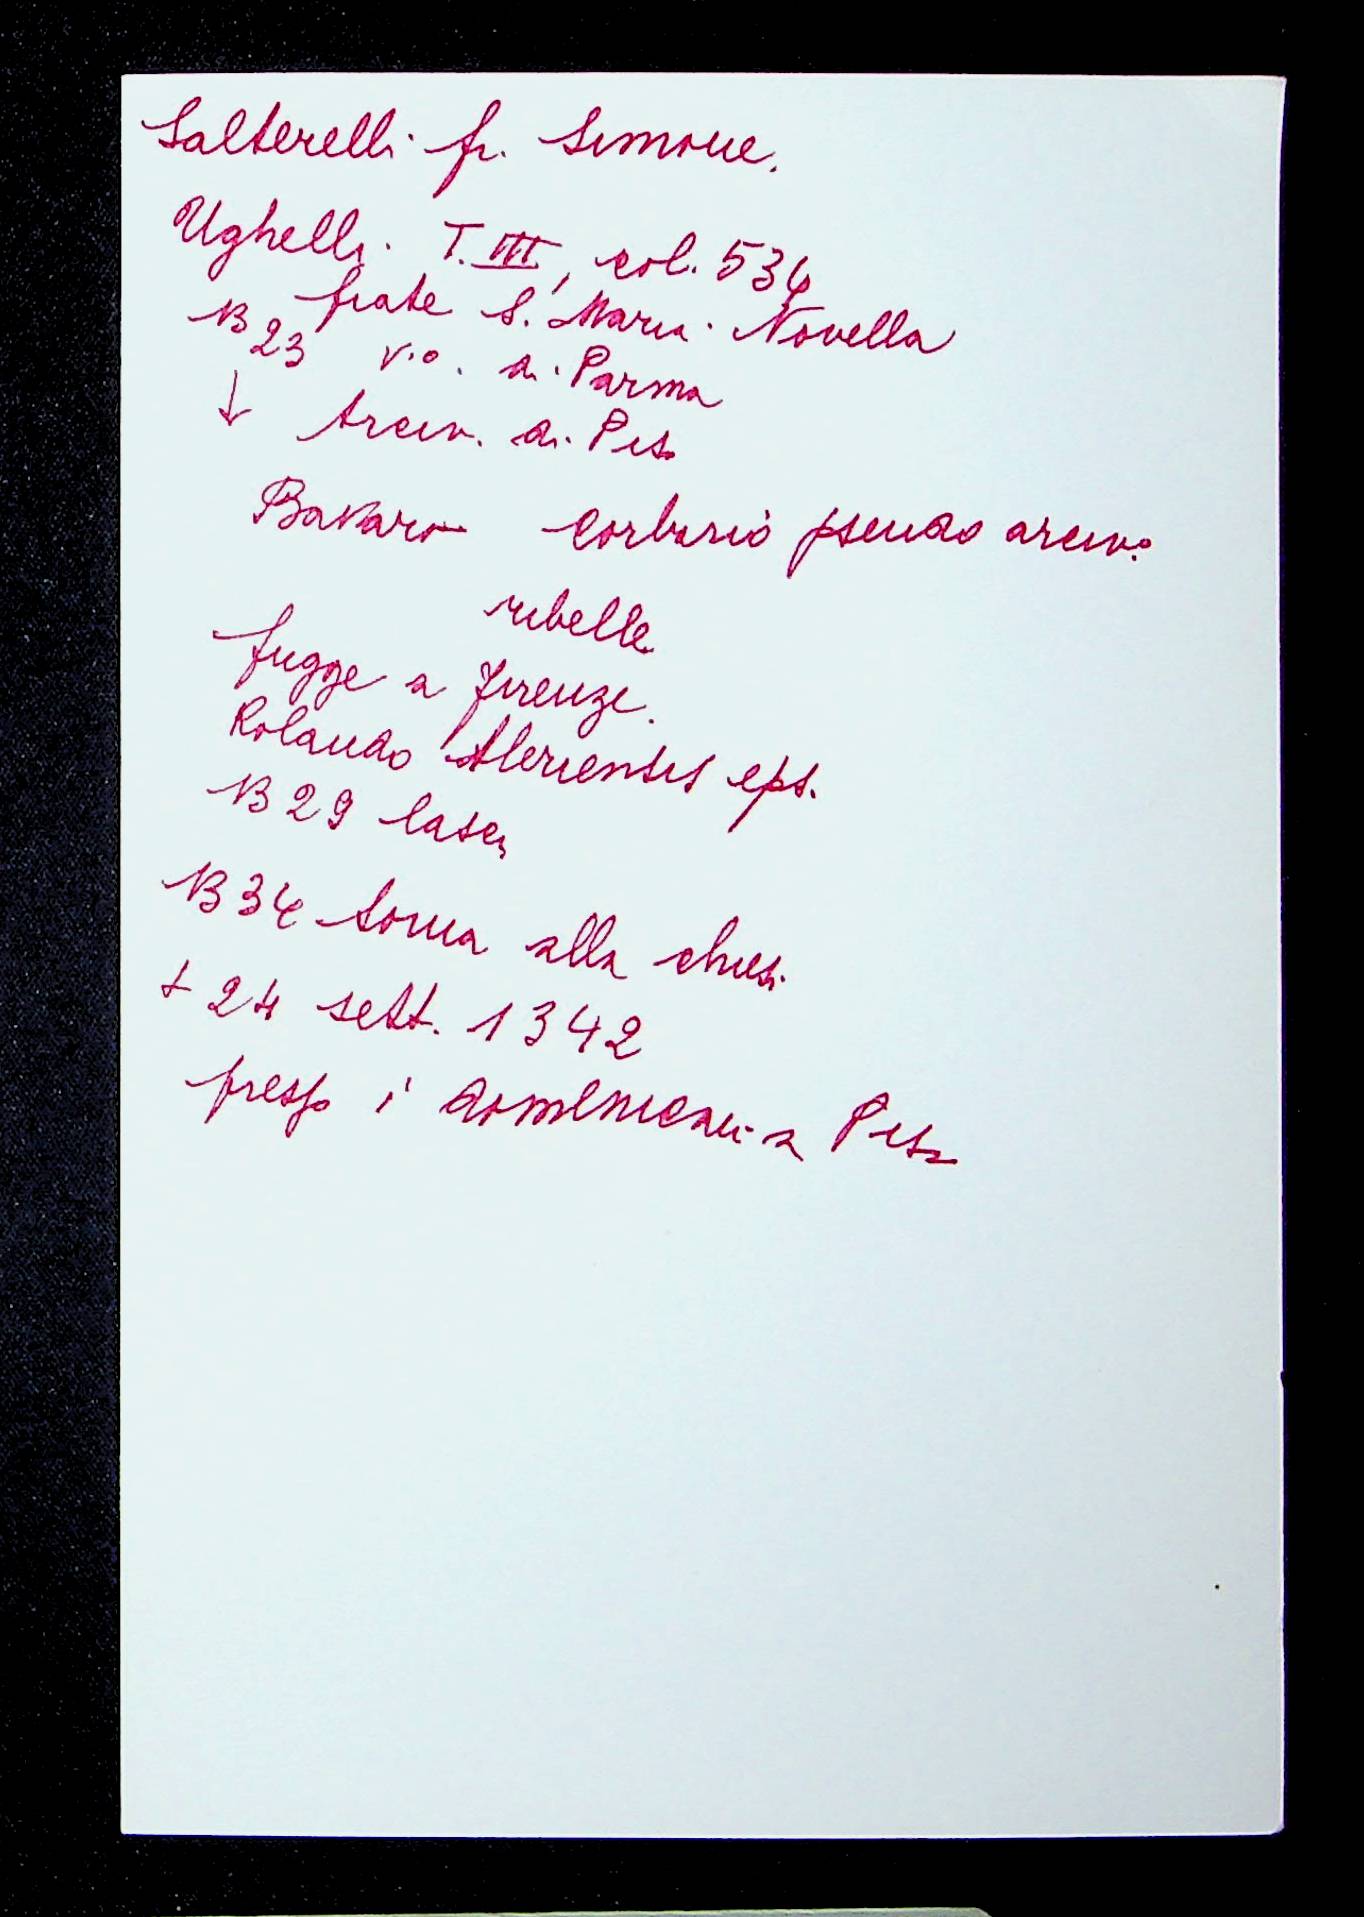 Salterelli fr. Simone.
Ughelli T. III, col. 534
frate S. Maria Novella
1323 v.o. di Parma
↓ Arciv. di Pisa
Bavaro Corbario pseudo arciv.
ribelle
fugge a Firenze.
Rolando Aleriensis eps.
1329 lascia
1334 torna alla chiesa
+ 24 sett. 1342
presso i domenicani a Pisa